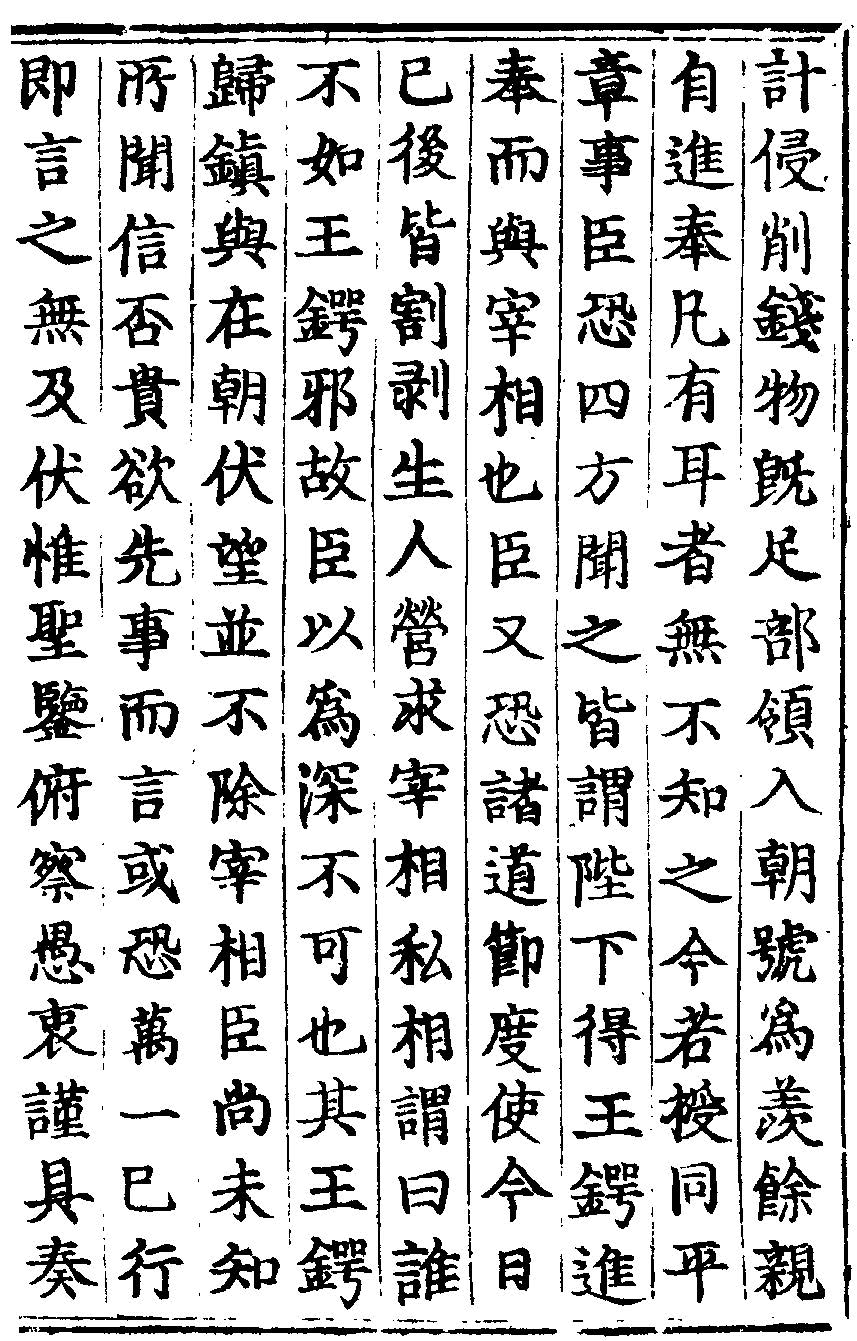 計侵削錢物旣足部領入朝號爲羨餘親
自進奉凡有耳者無不知之今若授同平
章事臣恐四方聞之皆謂陛下得王鍔進
奉而與宰相也臣又恐諸道節度使今日
已後皆割剥生人營求宰相私相謂曰誰
不如王鍔邪故臣以爲深不可也其王鍔
歸鎭與在朝伏望並不除宰相臣尚未知
所聞信否貴欲先事而言或恐萬一已行
即言之無及伏惟聖鑒俯察愚衷謹具奏